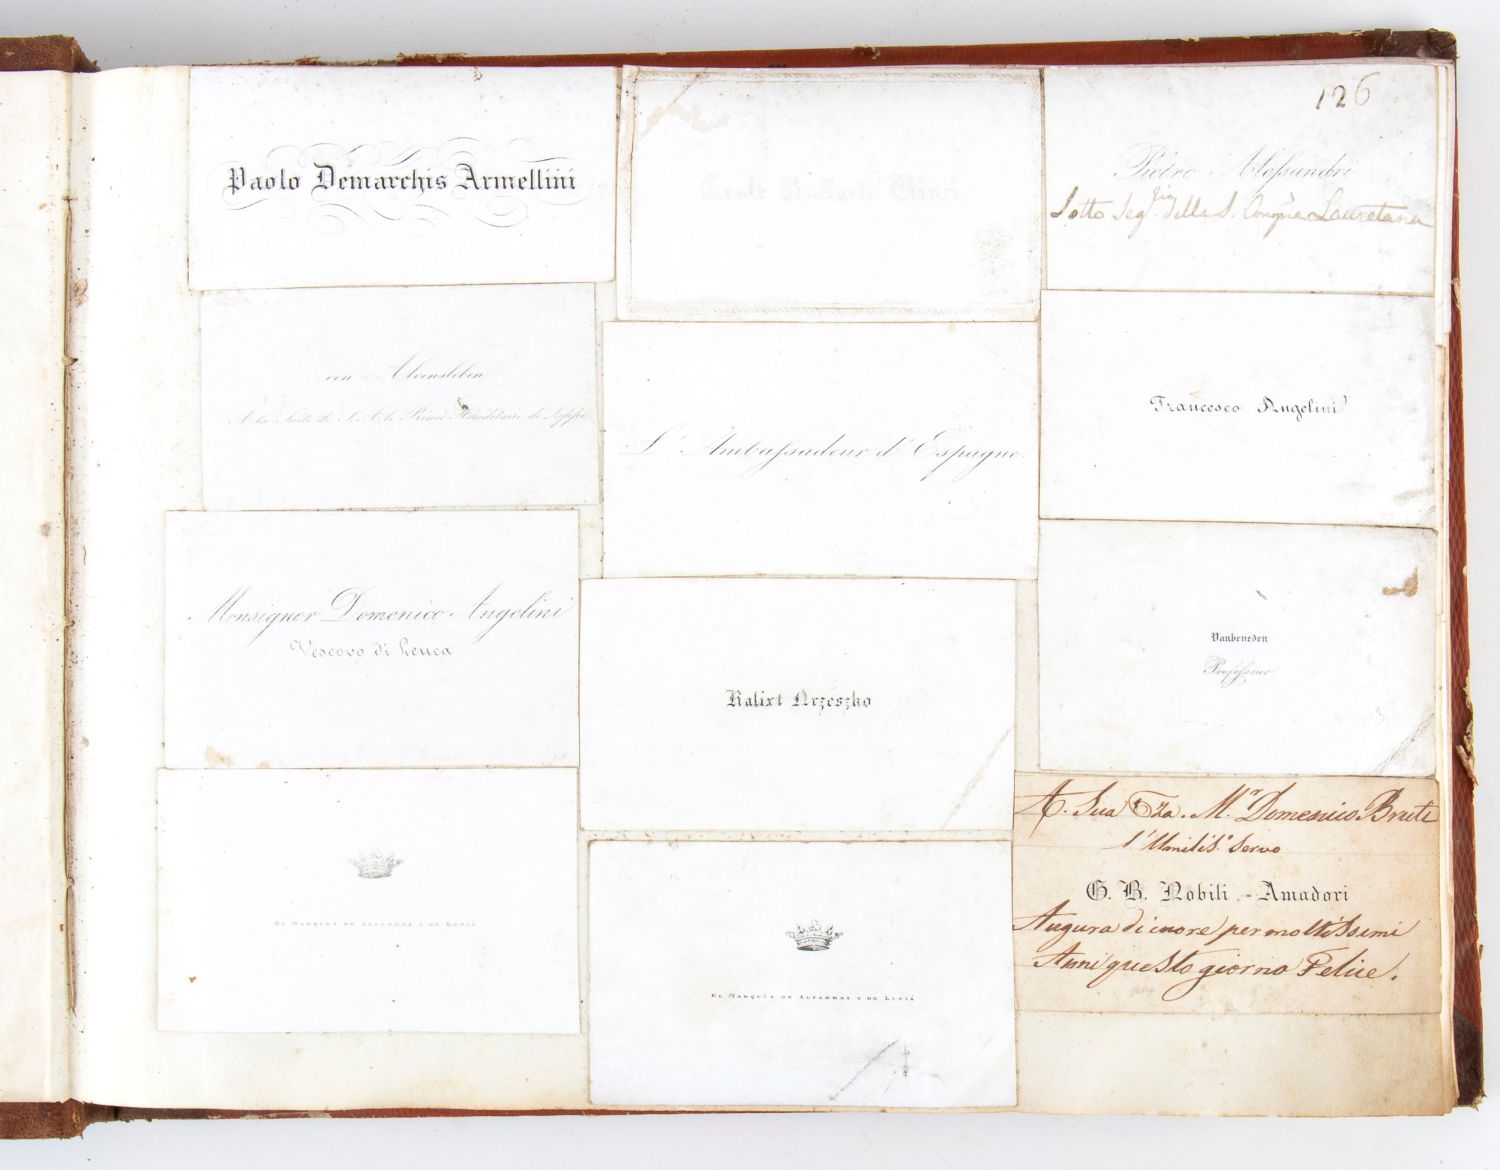 126
Paolo Demarchis Armellini
Raffaele
Pietro Alessandri
Sotto Seg.rio della S. Congne Lauretana
von Alvensleben
À la Suite de S. A. le Prince Héréditaire de Lippe
L'Ambassadeur d'Espagne
Francesco Angelini
Monsignor Domenico Angelini
Vescovo di Leuca
Kalixt Nrzeszko
Vanbeneden
Professeur
3
El Marques de Alfarras y de Lupiá
El Marques de Alfarras y de Lupiá
A. Sua Eza. M.r Domenico Bruti
l'Umilis.o Servo
G. B. Nobili - Amadori
Augura di cuore per moltissimi
Anni questo giorno Felice.